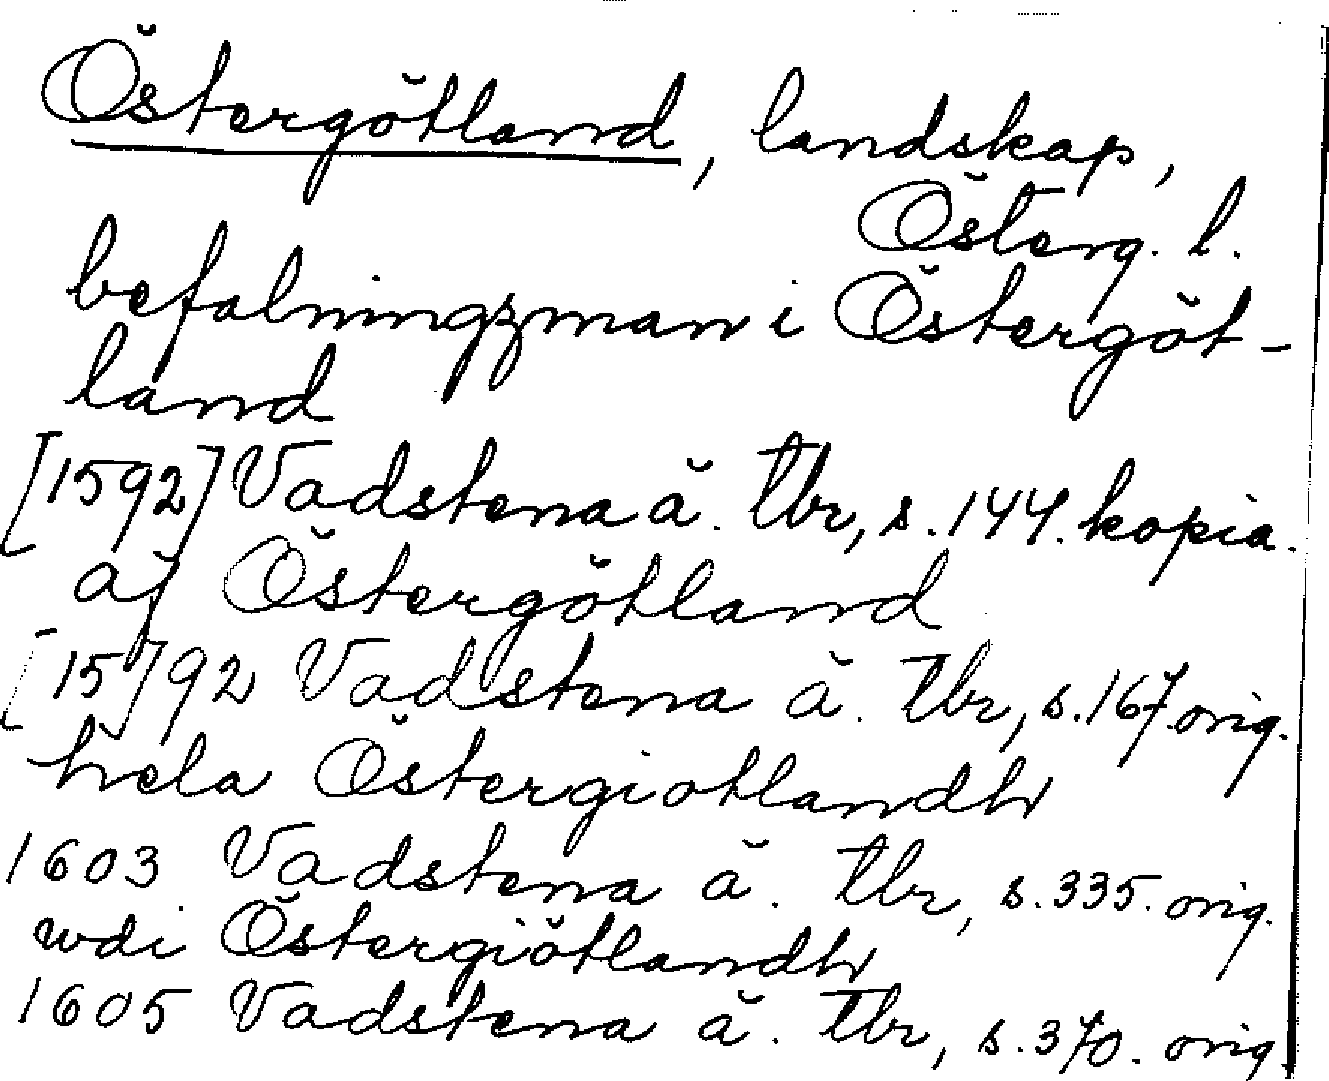 Östergötland, landskap,
Österg. l.
befalningzman i Östergöt-
land
[1592] Vadstena ä. tbr, s. 144. kopia.
af Östergötland
[15]92 Vadstena ä. tbr, s. 167 orig.
hela Östergiotlandh
1603 Vadstena ä. tbr, s. 335. orig.
wdi Östergiötlandh
1605 Vadstena ä. tbr, s. 370. orig